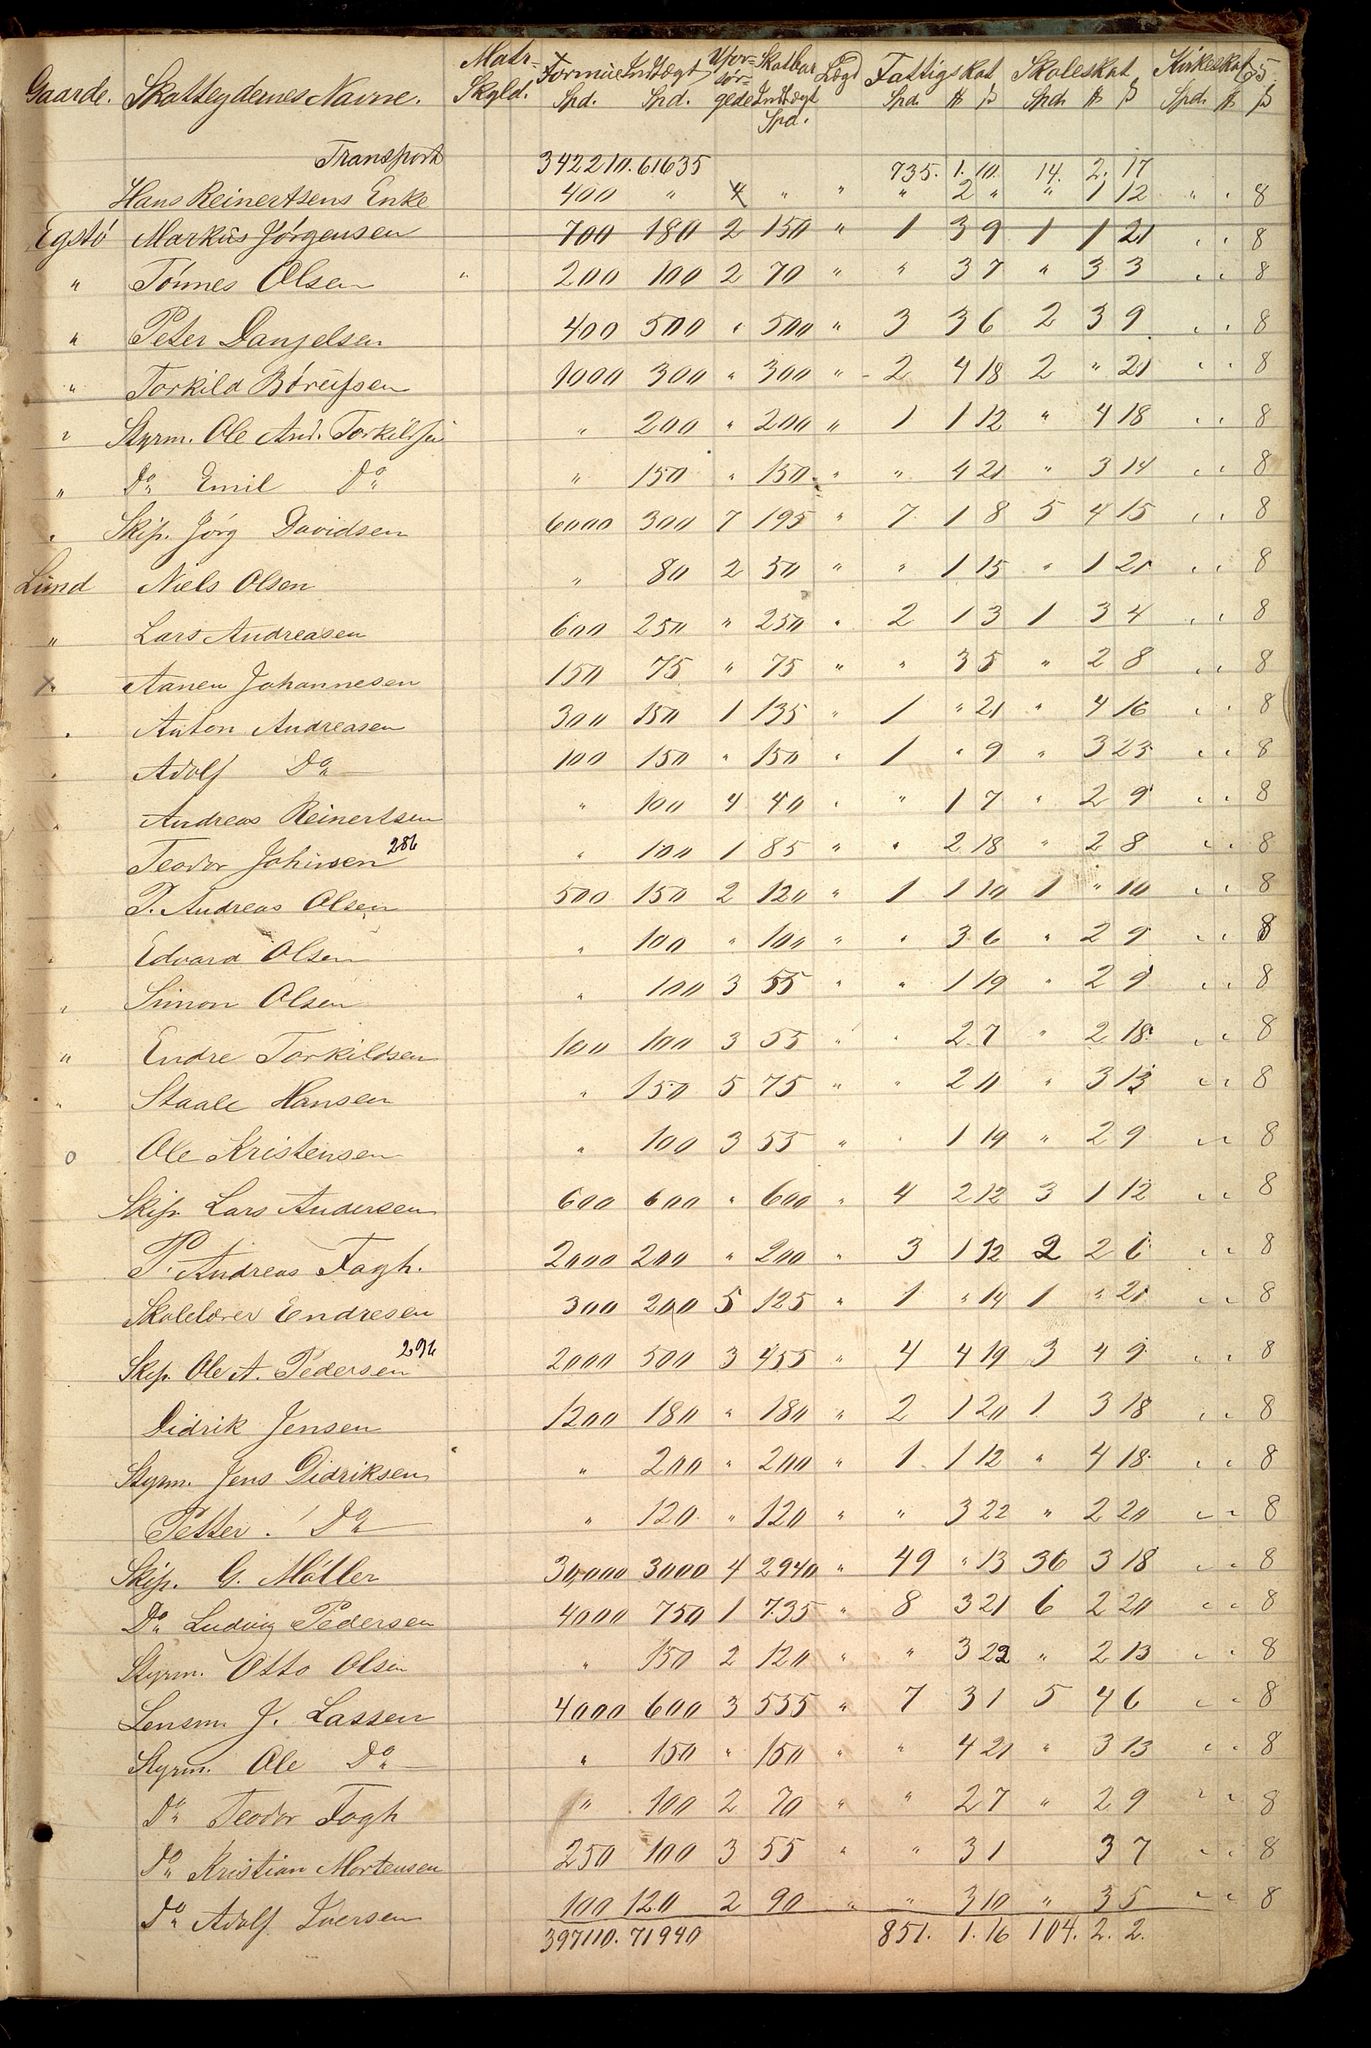 Gaarde. Skatteydernes Navne. Matr- Skyld. Formue Spd. Indtægt Spd. Ufor- sør- gede Skatbar Indtægt Spd. Lægd Fattigskat Spd. # ß Skoleskat Spd. # ß Kirkeskat Spd. # ß 65
Transport 342210. 61635 735. 1. 10. 14. 2. 17
Hans Reinertsens Enke 400 " 4 " " " 2 " " 1 12 " " 8
Egstö Markus Jörgensen 700 180 2 150 " 1 3 9 1 1 21 " " 8
" Tönnes Olsen " 200 100 2 70 " " 3 7 " 3 3 " " 8
" Peter Danjelsen 400 500 " 500 " 3 3 6 2 3 9 " " 8
" Torkild Böreifsen 1000 300 " 300 " 2 4 18 2 " 21 " " 8
" Styrm. Ole And. Torkildsen " 200 " 200 " 1 1 12 " 4 18 " " 8
" Do Emil Do " 150 " 150 " " 4 21 " 3 14 " " 8
" Skip. Jörg Davidsen 6000 300 7 195 " 7 1 8 5 4 15 " " 8
Lund Niels Olsen " 80 2 50 " " 1 15 " 1 21 " " 8
" Lars Andreasen 600 250 " 250 " 2 1 3 1 3 4 " " 8
x " Aanen Johannesen 150 75 " 75 " " 3 5 " 2 8 " " 8
" Anton Andreasen 300 150 1 135 " 1 " 21 " 4 16 " " 8
" Adolf Do 100 150 " 150 " 1 " 9 " 3 23 " " 8
" Andreas Reinertsen " 100 4 40 " " 1 7 " 2 9 " " 8
Teodor Johnsen 286 " 100 1 85 " " 2 18 " 2 8 " " 8
P. Andreas Olsen 500 150 2 120 " 1 1 10 1 " 10 " " 8
" Edvard Olsen " 100 " 100 " " 3 6 " 2 9 " " 8
" Simon Olsen " 100 3 55 " " 1 19 " 2 9 " " 8
" Endre Torkildsen 100 100 3 55 " " 2 7 " 2 18 " " 8
" Staale Hansen " 150 5 75 " " 2 11 " 3 13 " " 8
o Ole Kristensen " 100 3 55 " " 1 19 " 2 9 " " 8
Skip. Lars Andersen 600 600 " 600 " 4 2 12 3 1 12 " " 8
P. Andreas Fagh. 2000 200 " 200 " 3 1 12 2 2 6 " " 8
Skolelærer Endresen 300 200 5 125 " 1 " 14 1 " 21 " " 8
Skip. Ole A. Pedersen 296 2000 500 3 455 " 4 4 19 3 4 9 " " 8
Didrik Jensen 1200 180 " 180 " 2 1 20 1 3 18 " " 8
Styrm. Jens Didriksen " 200 " 200 " 1 1 12 " 4 18 " " 8
Petter. Do " 120 " 120 " " 3 22 " 2 20 " " 8
Skip. G. Möller 30,000 3000 4 2940 " 49 " 13 36 3 18 " " 8
Do Ludvig Pedersen 4000 750 1 735 " 8 3 21 6 2 20 " " 8
Styrm. Otto Olsen " 150 2 120 " " 3 22 " 2 13 " " 8
Lensm. J. Lassen 4000 600 3 555 " 7 3 1 5 4 6 " " 8
Styrm. Ole Do " 150 " 150 " " 4 21 " 3 13 " " 8
Do Teodor Fagh " 100 2 70 " " 2 7 " 2 9 " " 8
Do Kristian Mortensen 250 100 3 55 " " 3 1 3 7 " " 8
Do Adolf Iversen 100 120 2 90 " " 3 10 " 3 5 " " 8
397110. 71940 851. 1. 16 104. 2. 2.